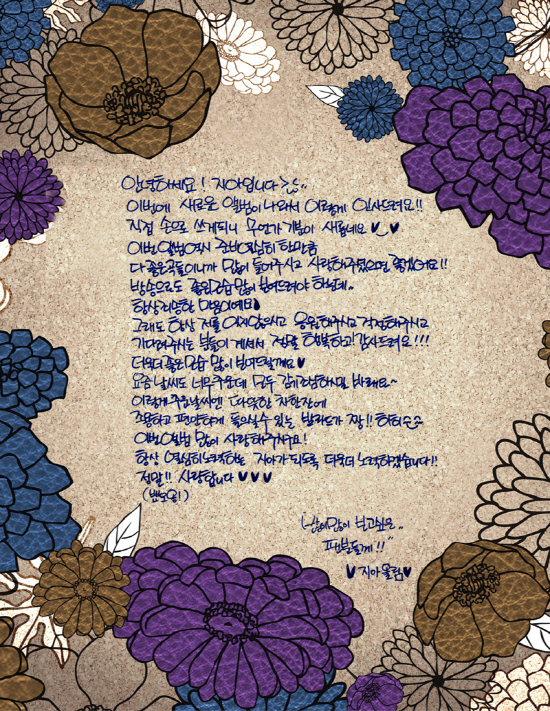 안녕하세요! 지아입니다 >.<
이번에 새로운 앨범이 나와서 이렇게 인사드려요!!
직접 손으로 쓰게되니 무언가 기분이 새롭네요 ♥
이번 앨범역시 준비열심히 한만큼
다 좋은곡들이니까 많이 들어주시고 사랑해주셨으면 좋겠어요!!
방송으로도 좋은모습 많이 보여드려야 하는데..
항상 죄송한 마음이에요
그래도 항상 저를 잊지않으시고 응원해주시고 걱정해주시고
기다려주시는 분들이 계셔서 정말 행복하고 감사드려요!!!
더욱더 좋은모습 많이 보여드릴게요 ♥
요즘 날씨도 너무 추운데 모두 감기조심하시길 바래요~
이렇게 추운날씨엔 따뜻한 차한잔에
조용하고 편안하게 들으실수 있는 발라드가 짱!!
이번앨범 많이 사랑해주시구요!
항상 열심히노력하는 지아가 되도록 더욱더 노력하겠습니다!!
정말!! 사랑합니다 ♥♥♥
(뿅뿅!)
많이많이 보고싶은..
팬분들께!!
♥지아올림♥